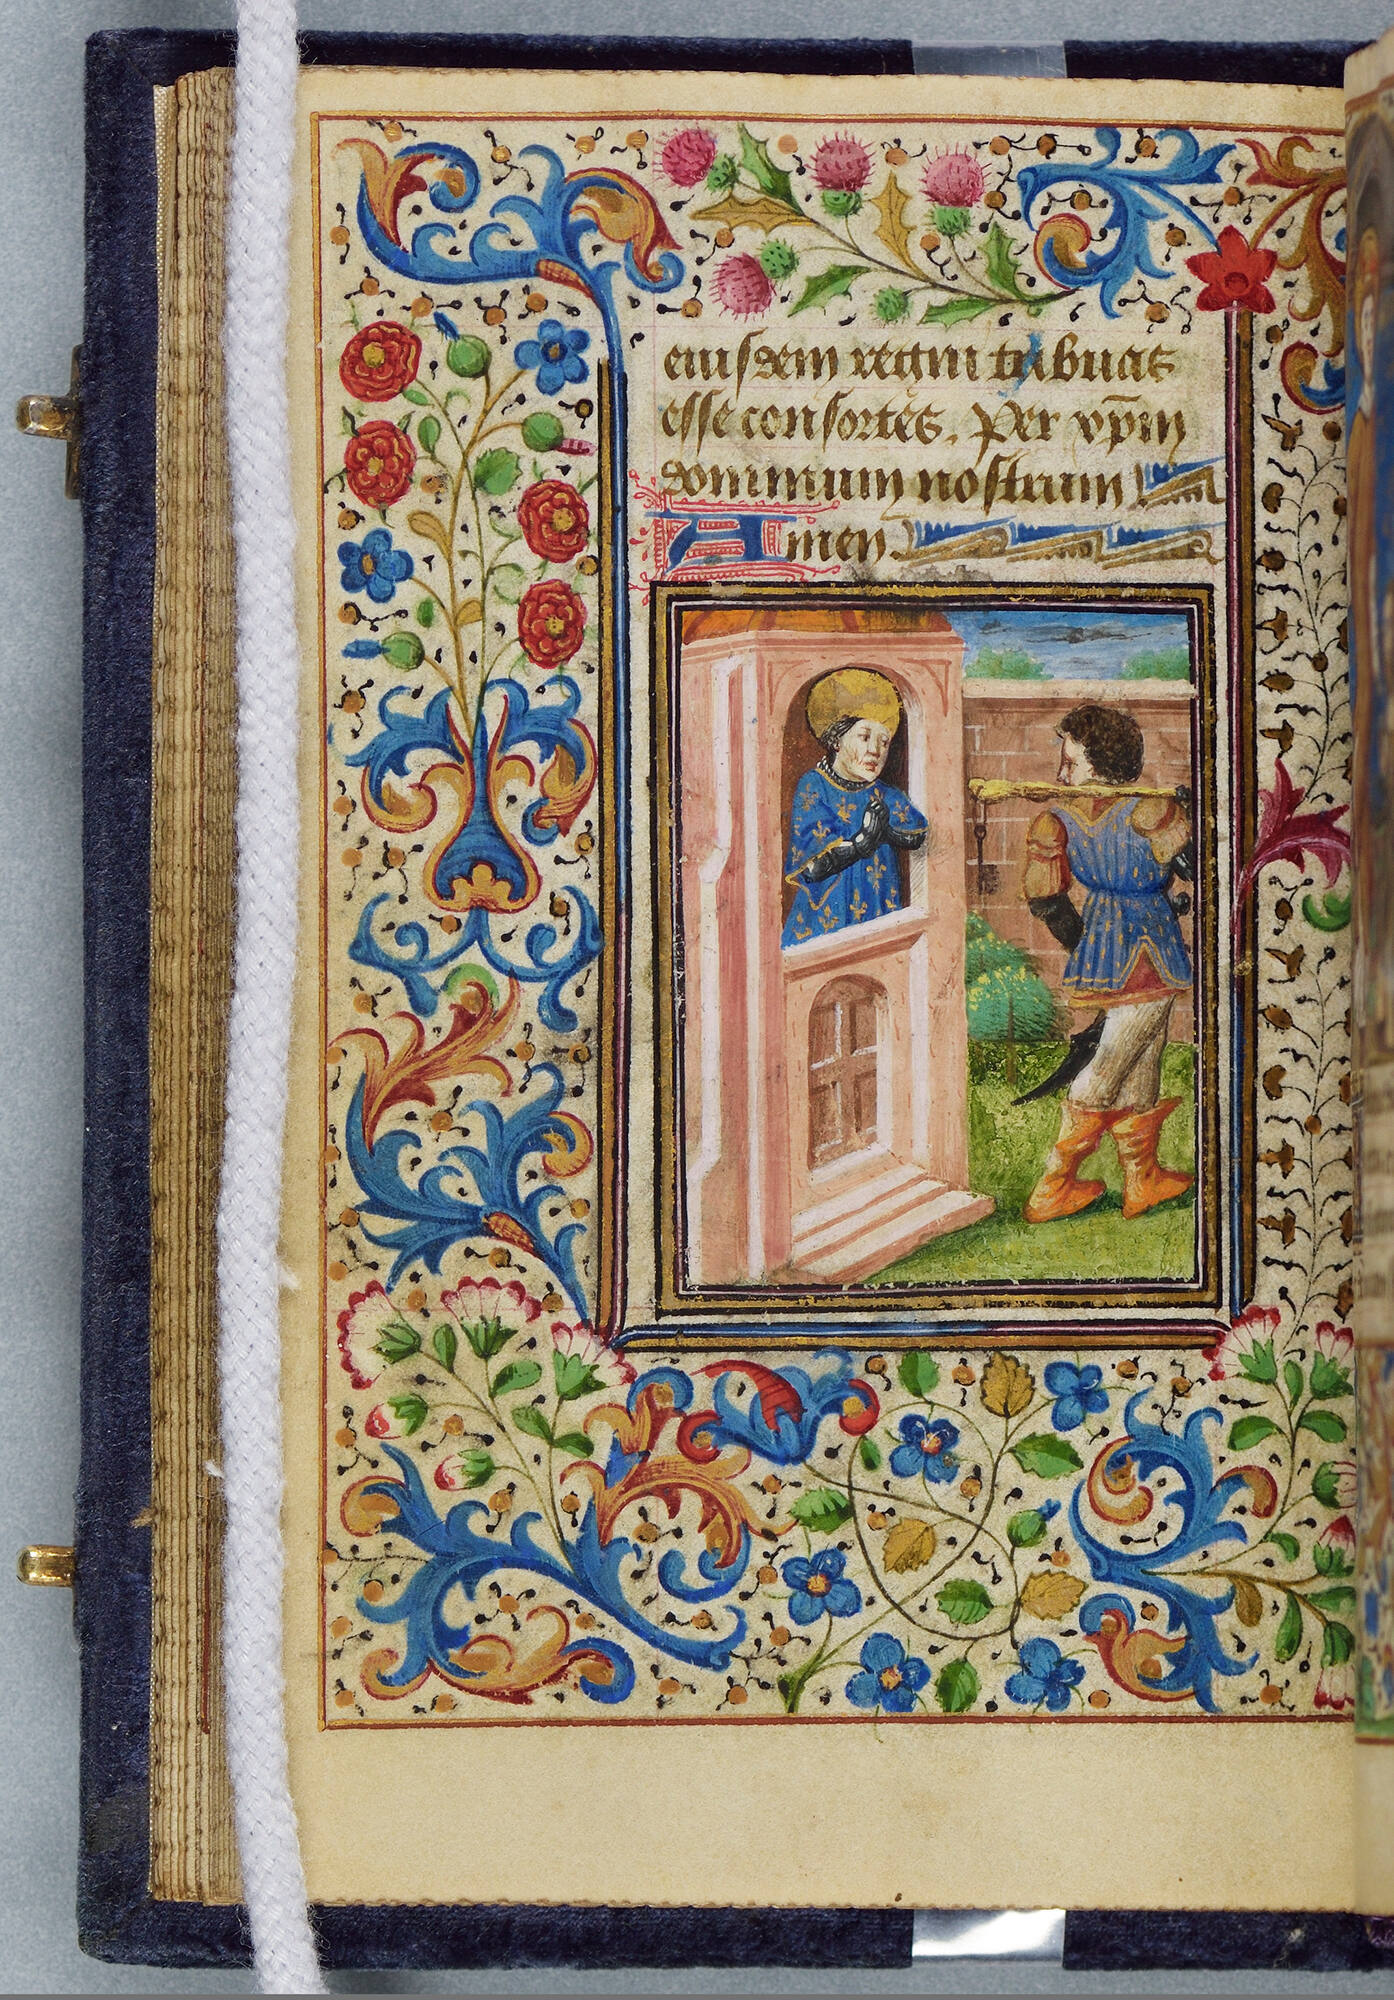 eiusdem regni tribuas
esse consortes. Per xp̄m
dominum nostrum
Amen